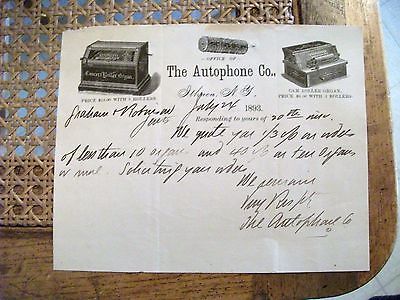 OFFICE OF
The Autophone Co.,
Concert Roller Organ.
PRICE WITH 5 ROLLERS.
GEM ROLLER ORGAN.
PRICE WITH 3 ROLLERS.
Ithaca, N. Y.
July 24 1893.
Graham & Robinson
Gents
Responding to yours of 20th inst.
We quote you 1/3 % on orders
of less than 10 organs and 45 % on ten organs
or more. Soliciting your orders
We remain
Very Resp't
The Autophone Co